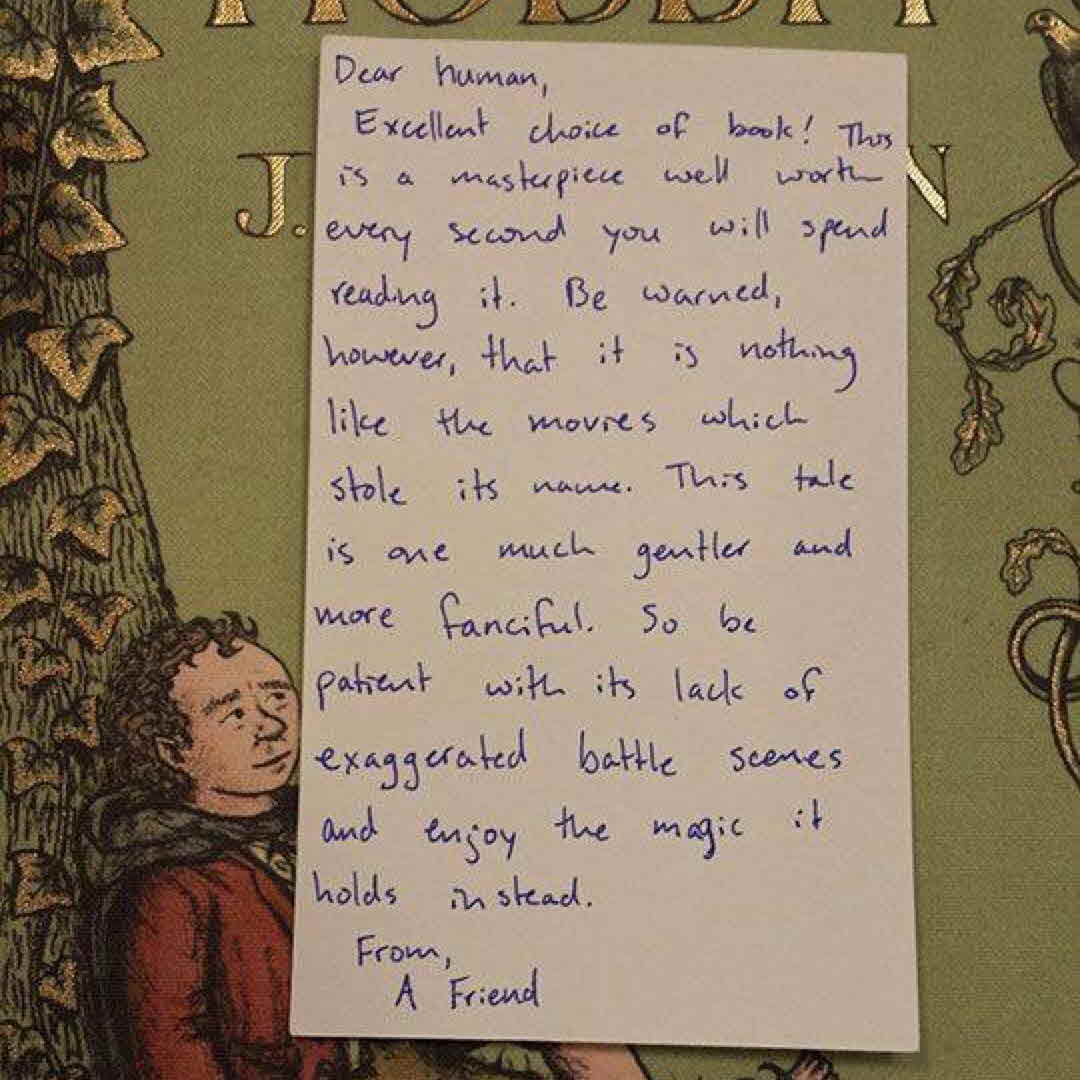 HOBBIT
J. N
Dear human,
Excellent choice of book! This
is a masterpiece well worth
every second you will spend
reading it. Be warned,
however, that it is nothing
like the movies which
stole its name. This tale
is one much gentler and
more fanciful. So be
patient with its lack of
exaggerated battle scenes
and enjoy the magic it
holds instead.
From,
A Friend